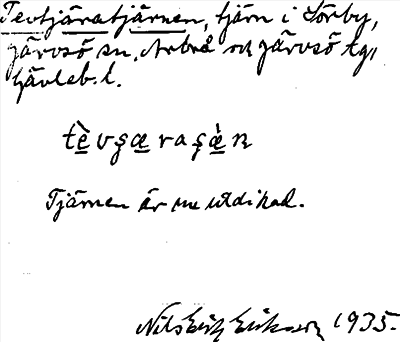 Tevtjäratjärnen, tjärn i Sörby,
Järvsö sn, Arbrå och Järvsö tg,
Gävleb. l.
tèvʂæraʂæ̀ɴ
Tjärnen är nu utdikad.
Nils Erik Eriksson 1935.